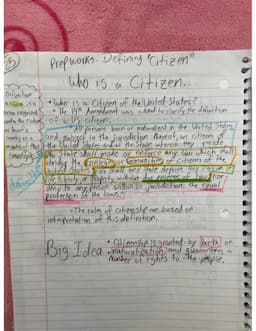 Prepworks: Defining "Citizen"
Who is a Citizen.
• Who is a citizen of the United States?
• The 14th Amendment was added to clarify the definition
of a US citizen.
"All persons born or naturalized in the United States
and subject to the jurisdiction thereof, are citizens of
the United States and of the State wherein they reside
No State shall make or enforce any law which shall
abridge the privileges or immunities of citizens of the
United States; nor shall any State deprive any person of
life, liberty, or property, without due process of law; nor
deny to any person within its jurisdiction the equal
protection of the laws."
• The rules of citizenship are based on
interpretation of this definition.
Big Idea
• Citizenship is granted by birth or
naturalization and guarantees a
number of rights to the people.